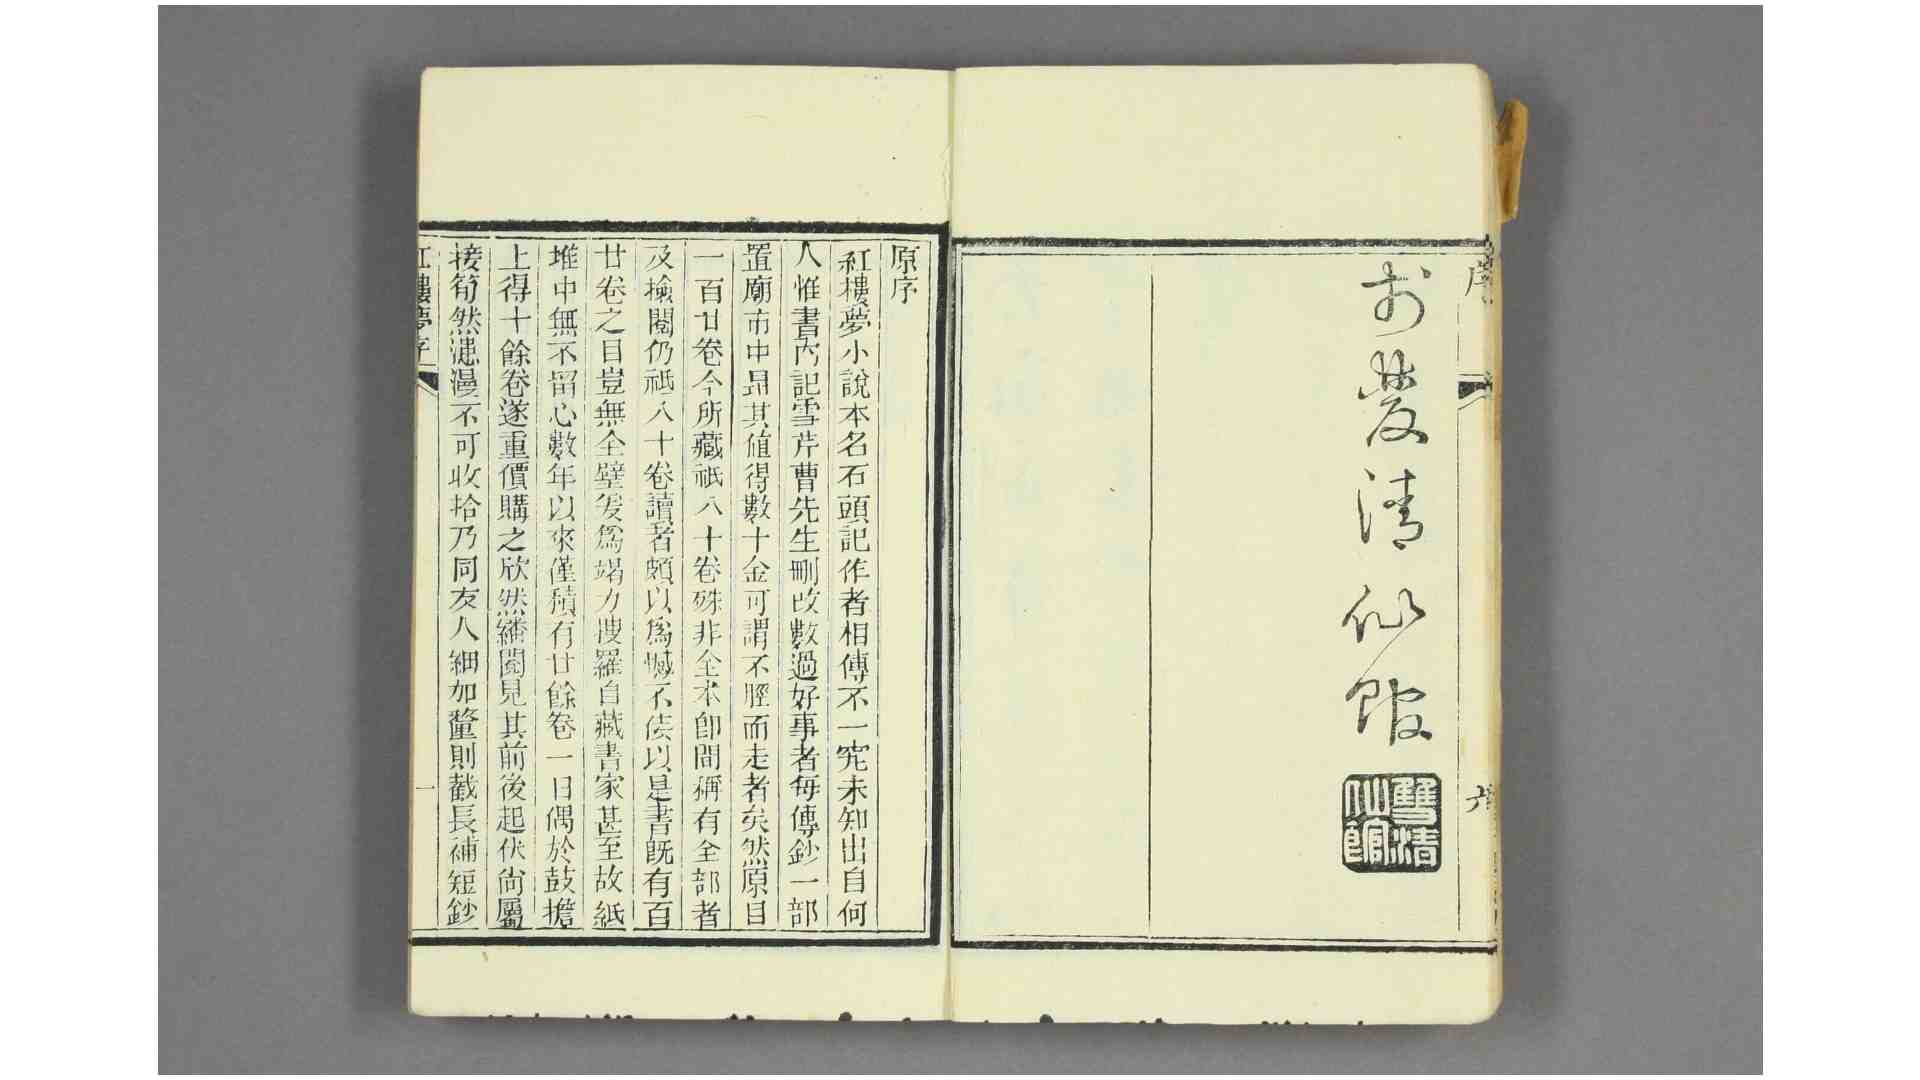 序 六
於雙清仙館
雙清仙館
原序
紅樓夢小說本名石頭記作者相傳不一究未知出自何
人惟書內記雪芹曹先生刪改數過好事者每傳鈔一部
置廟市中昻其値得數十金可謂不脛而走者矣然原目
一百廿卷今所藏祇八十卷殊非全本卽間稱有全部者
及檢閱仍祇八十卷讀者頗以爲憾不佞以是書旣有百
廿卷之目豈無全璧爰爲竭力搜羅自藏書家甚至故紙
堆中無不留心數年以來僅積有廿餘卷一日偶於鼓擔
上得十餘卷遂重價購之欣然繙閱見其前後起伏尙屬
接筍然漶漫不可收拾乃同友人細加釐則截長補短鈔
紅樓夢序 一